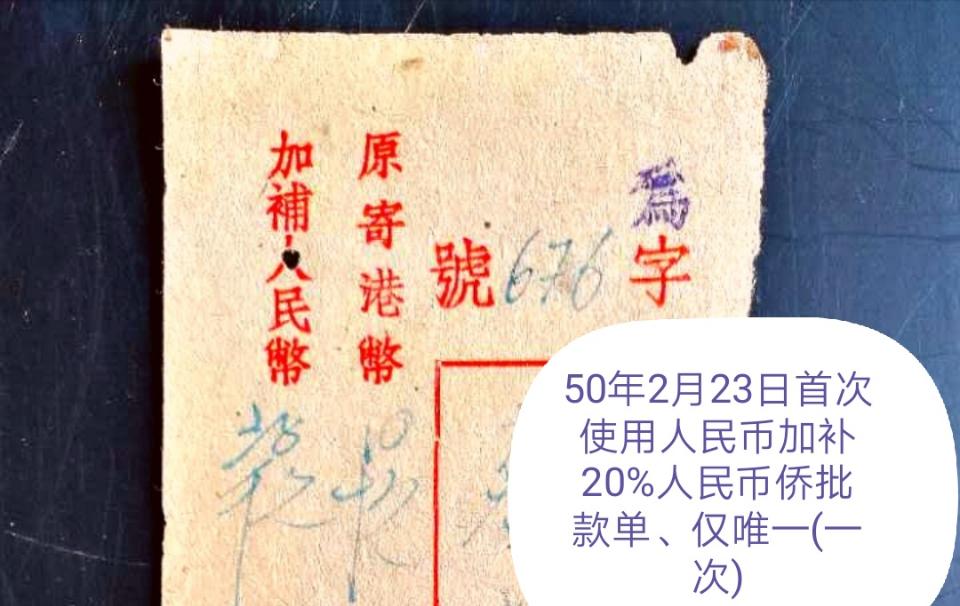 為字676號
原寄港幣
加補人民幣
50年2月23日首次
使用人民币加补
20%人民币侨批
款单、仅唯一(一
次)